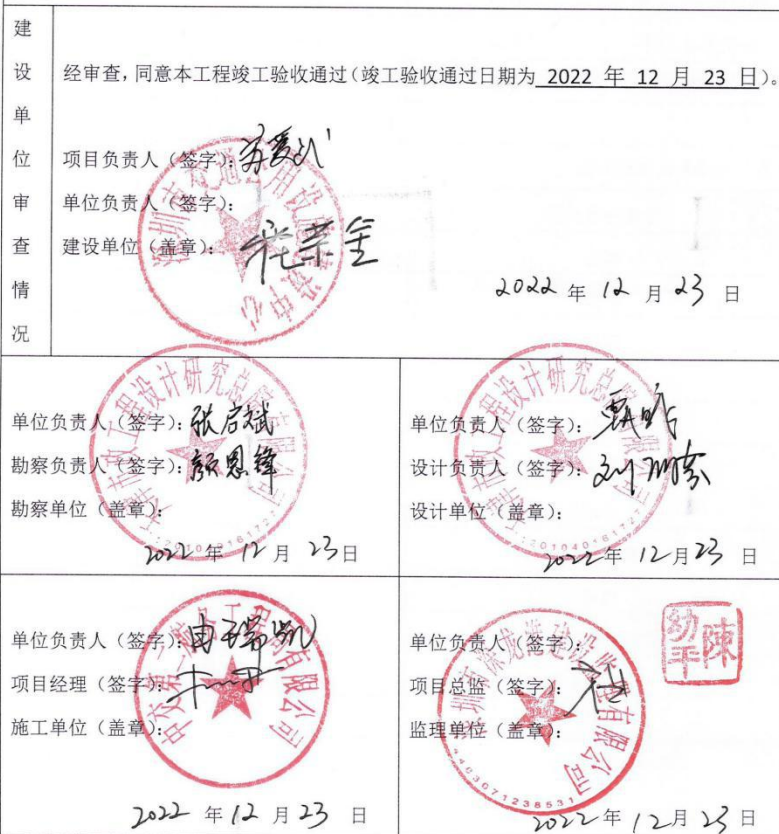 建设单位审查情况
经审查，同意本工程竣工验收通过（竣工验收通过日期为 2022 年 12 月 23 日）。
项目负责人（签字）：
单位负责人（签字）：
建设单位（盖章）：
2022 年 12 月 23 日
单位负责人（签字）：张启斌
勘察负责人（签字）：颜恩锋
勘察单位（盖章）：
2022 年 12 月 23 日
单位负责人（签字）：
设计负责人（签字）：
设计单位（盖章）：
2022 年 12 月 23 日
单位负责人（签字）：
项目经理（签字）：
施工单位（盖章）：
2022 年 12 月 23 日
单位负责人（签字）：
项目总监（签字）：
监理单位（盖章）：
陳幼平
4403071238531
2022 年 12 月 23 日